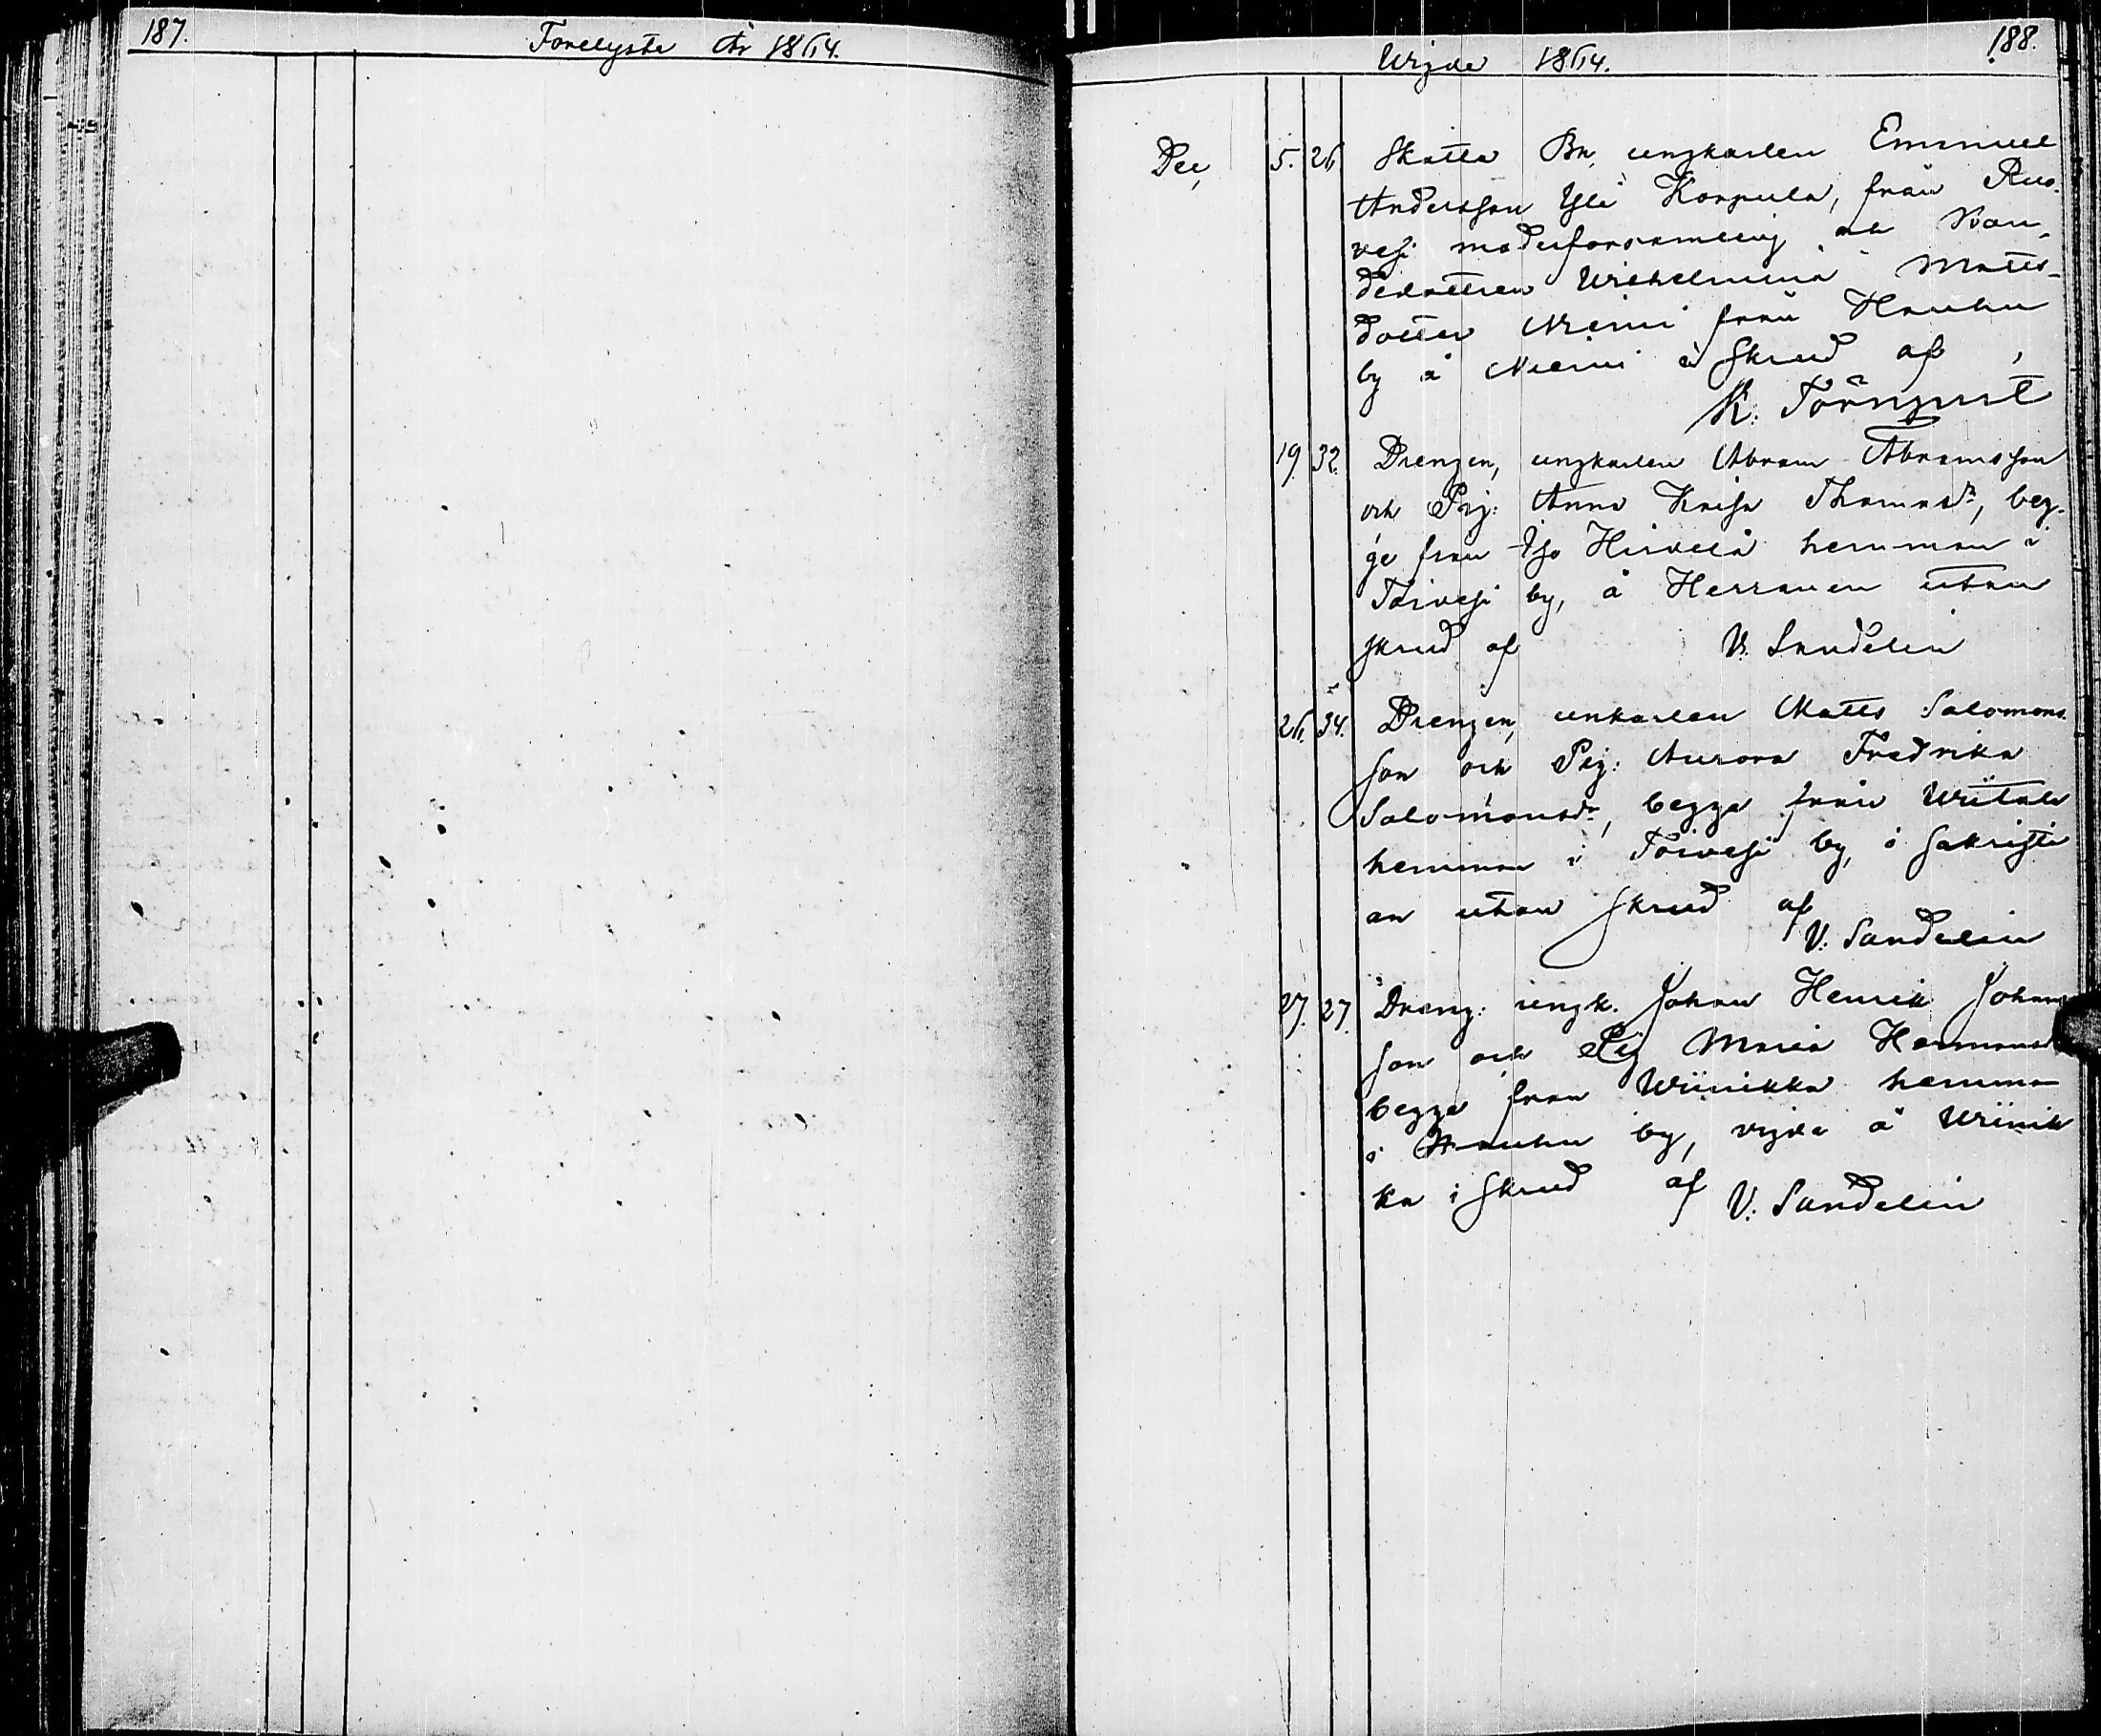 187.
Forelyste År 1864.
Wigde 1864.
188.
Dec, 5. 26 Skatte Bn. ungkarlen Emmuel
Andersson Yli Korpula, från Ruo-
vesi moderforsamling och Bon-
dedottren Wilhelmina Matts-
dotter Niemi från Hauhu
by å Niemi i skrud af
K. Törnqvist
19. 32. Drengen, ungkarlen Abram Abramsson
och Pig: Anna Kaisa Thomasdr, beg-
ge från Iso Hirvelä hemman i
Toivesi by, å Herranen utan
skrud af V. Sandelin
26. 34. Drengen, unkarlen Matts Salomons-
son och Pig: Aurora Fredrika
Salomonsdr, begge från Wiitala
hemman i Toivesi by, i Sakristi
an utan skrud af
V. Sandelin
27. 27. Dreng: ungk. Johan Henrik Johans
son och Pig Maria Hermansd
begge från Wiinikka hemman
i Hauhu by, vigde å Wiinik
ka i skrud af V. Sandelin